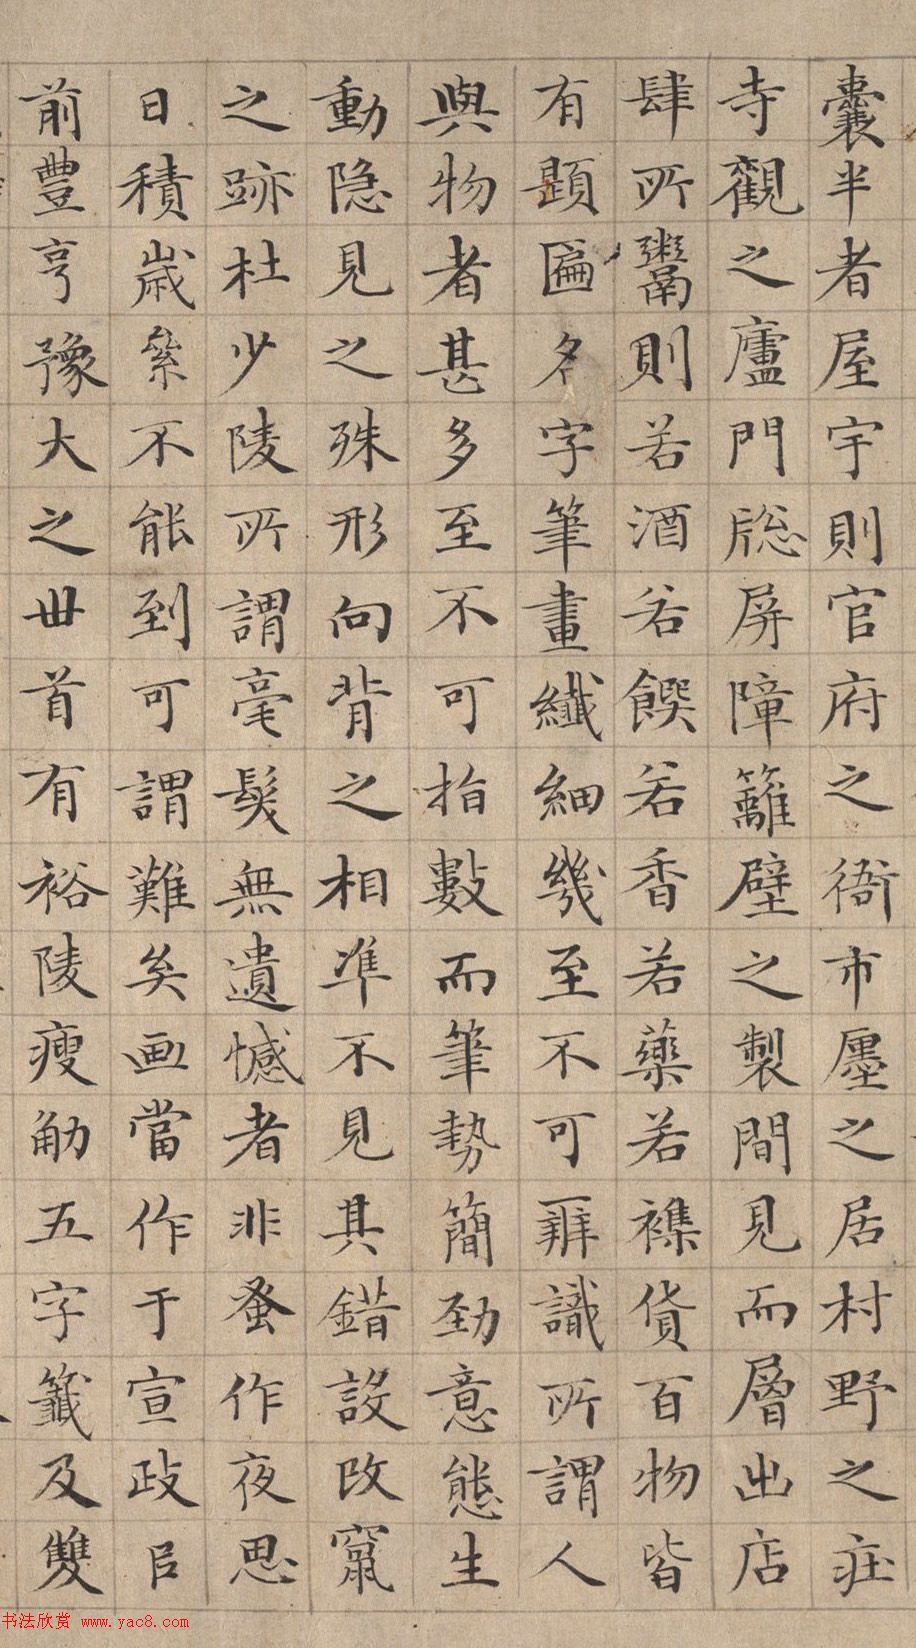 囊半者屋宇則官府之衙市廛之居村野之莊
寺觀之廬門牎屏障籬壁之製間見而層出店
肆所鬻則若酒若饌若香若藥若襍貨百物皆
有題匾名字筆畫纖細幾至不可辨識所謂人
與物者甚多至不可指數而筆勢簡勁意態生
動隐見之殊形向背之相準不見其錯誤改竄
之跡杜少陵所謂毫髮無遺憾者非蚤作夜思
日積歲絫不能到可謂難矣画當作于宣政以
前豐亨豫大之世首有裕陵瘦觔五字籤及雙
书法欣赏 www.yac8.com